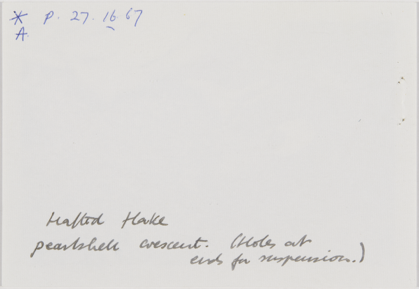 * P. 27. 16. 67
A
Hafted flake
pearlshell crescent. (Holes at
ends for suspension.)